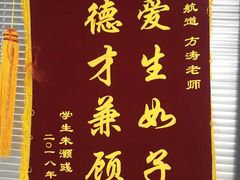 航道 方涛老师
爱生如子
德才兼顾
学生朱灏彧
二〇一八年